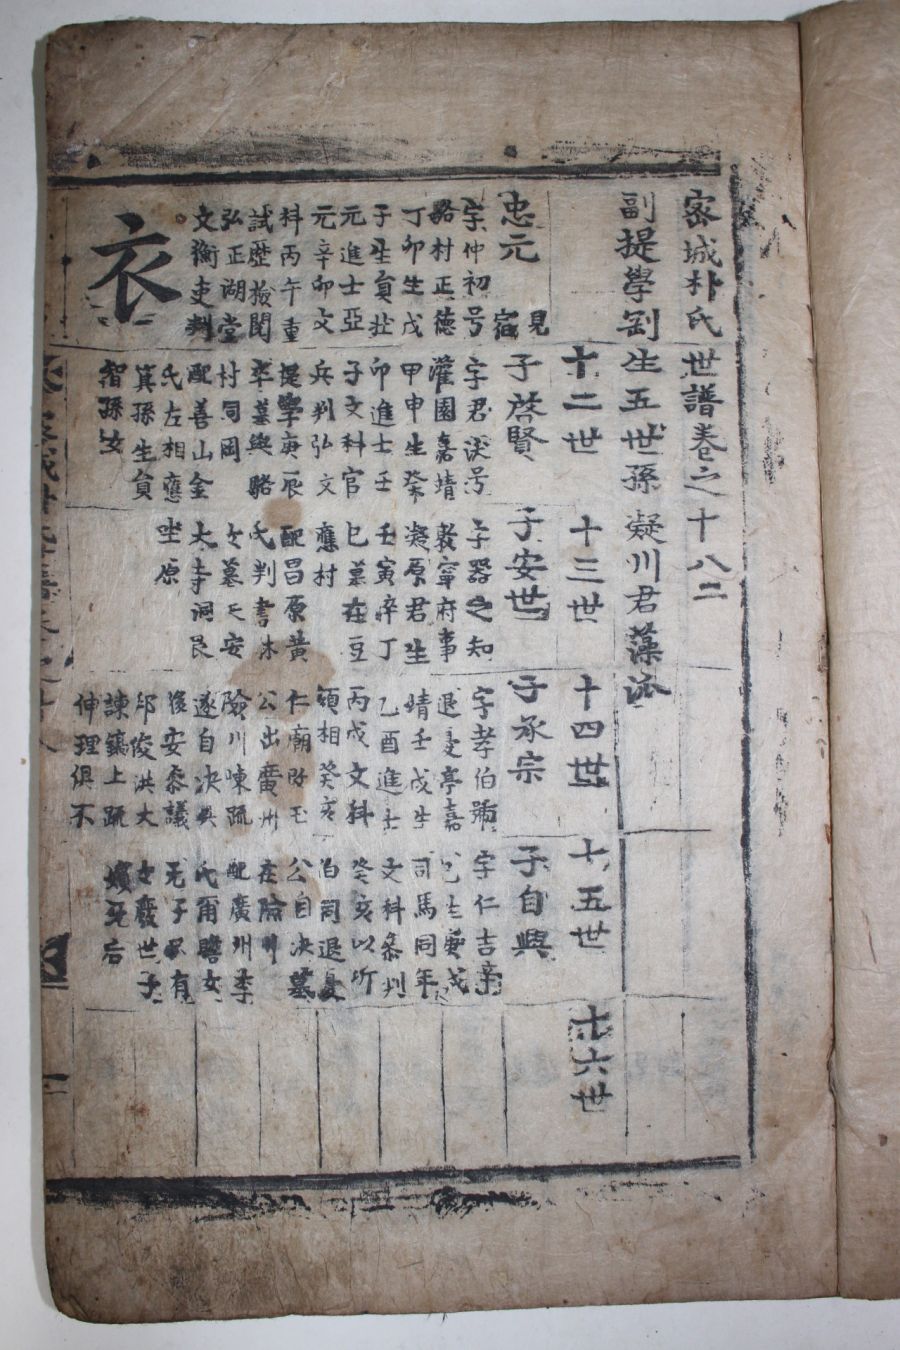 密城朴氏世譜卷之十八二
副提學剛生五世孫凝川君藻派
十二世
十三世
十四世
十五世
十六世
忠元
見
字仲初号
駱村正德
丁卯生戊
子生貟壯
元進士亞
元辛卯文
科丙午重
試歷撿閱
弘正湖堂
文衡吏判
衣
子啓賢
字君沃号
灌園嘉靖
甲申生癸
卯進士壬
子文科官
兵判弘文
提學庚辰
卒墓與駱
村同岡
配善山金
氏左相應
箕孫生貟
智孫女
子安世
子器之知
敦寧府事
凝原君生
壬寅卒丁
巳墓在豆
應村
配昌原黃
氏判書林
女墓天安
大寺洞艮
坐原
子承宗
字孝伯號
退憂亭嘉
靖壬戌生
乙酉進士
丙戌文科
領相癸亥
仁廟改玉
公出廣州
陰川味疏
遂自決與
後安叅議
邱俊洪大
諫鎬上疏
伸理俱不
子自興
字仁吉辛
巳生庚戌
司馬同年
文科叅判
癸亥以斤
伯同退憂
公自決墓
在陰川
配廣州李
氏爾瞻女
无子只有
女廢世子
嬪死后